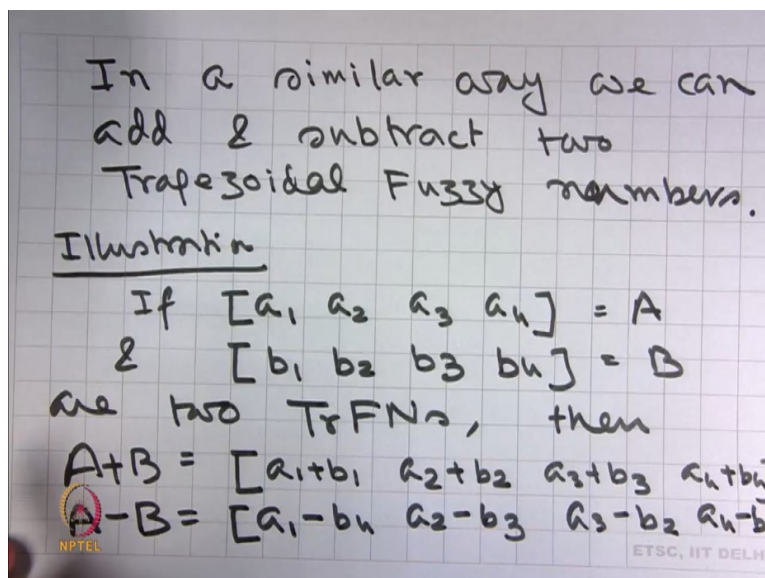 In a similar way we can
add & subtract two
Trapezoidal Fuzzy numbers.
Illustration
If [a₁ a₂ a₃ a₄] = A
& [b₁ b₂ b₃ b₄] = B
are two TrFNs, then
A+B = [a₁+b₁ a₂+b₂ a₃+b₃ a₄+b₄
A-B = [a₁-b₄ a₂-b₃ a₃-b₂ a₄-b
NPTEL
ETSC, IIT DELH